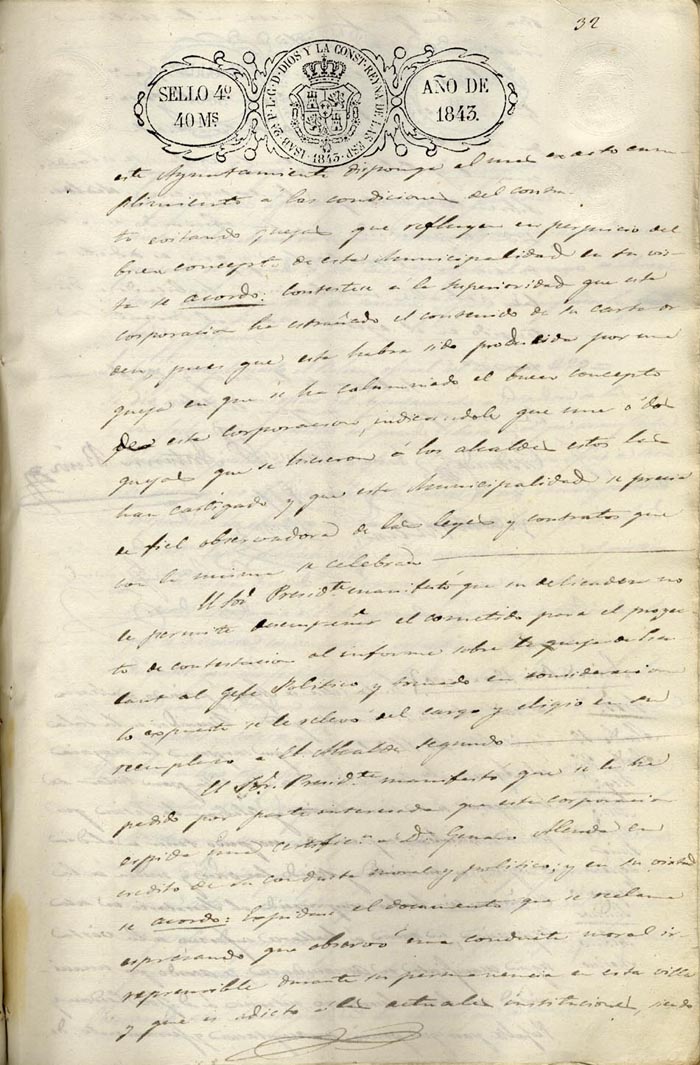 32
SELLO 4º
40 Ms
ISAB. 2ª P. L. G. D. DIOS Y LA CONST. REYNA DE LAS ESP. 1843.
AÑO DE
1843.
este Ayuntamiento disponga el mas exacto cum
plimiento á las condiciones del contra
to evitando quejas que refluyen en perjuicio del
buen concepto de esta Municipalidad en su vis-
ta se acordo: Contestar á la Superioridad que esta
corporacion ha estrañado el contenido de su carta or
den, pues que esta habra sido producida por una
queja en que se ha calumniado el buen concepto
de esta corporacion, indicandole que una ó dos
quejas que se hicieron á los alcaldes estos las
han castigado y que esta Municipalidad se precia
de fiel observadora de las leyes y contratos que
con la misma se celebran
El Sor. Presidte manifestó que su delicadeza no
le permite desempeñar el cometido para el proyec
to de contestacion al informe sobre la queja de
al Gefe Politico y tomado en consideracion
lo expuesto se le relevó del cargo y eligio en su
reemplazo á el Alcalde segundo
El Sor. Presidte manifestó que se le ha
pedido por parte interesada que esta corporacion
espida una certificn á D. Genaro en
credito de su conducta moral y politica; y en su vista
se acordo: Espidase el documento que se reclama
espresando que observó una conducta moral ir
reprensible durante su permanencia en esta villa
y que es adicto á las actuales instituciones, siendo